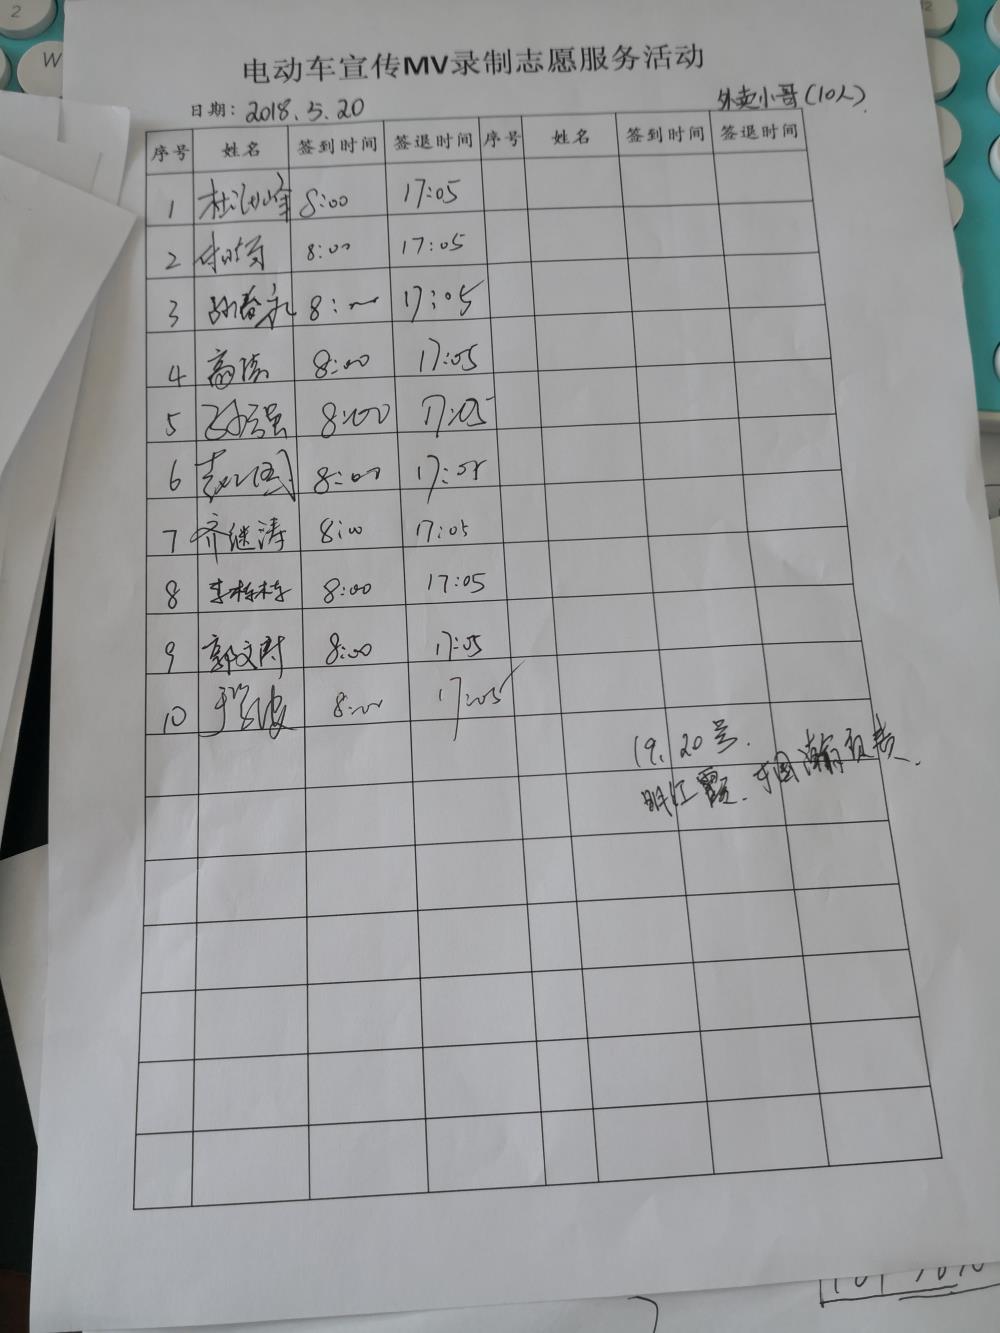 电动车宣传MV录制志愿服务活动
日期：2018.5.20 外卖小哥(10人)
序号 姓名 签到时间 签退时间 序号 姓名 签到时间 签退时间
1 8:00 17:05
2 8:00 17:05
3 8:00 17:05
4 8:00 17:05
5 孙强 8:00 17:05
6 8:00 17:05
7 齐继涛 8:00 17:05
8 李栋栋 8:00 17:05
9 郭文尉 8:00 17:05
10 于学波 8:00 17:05
19、20号.
明红霞、于国瀚负责.